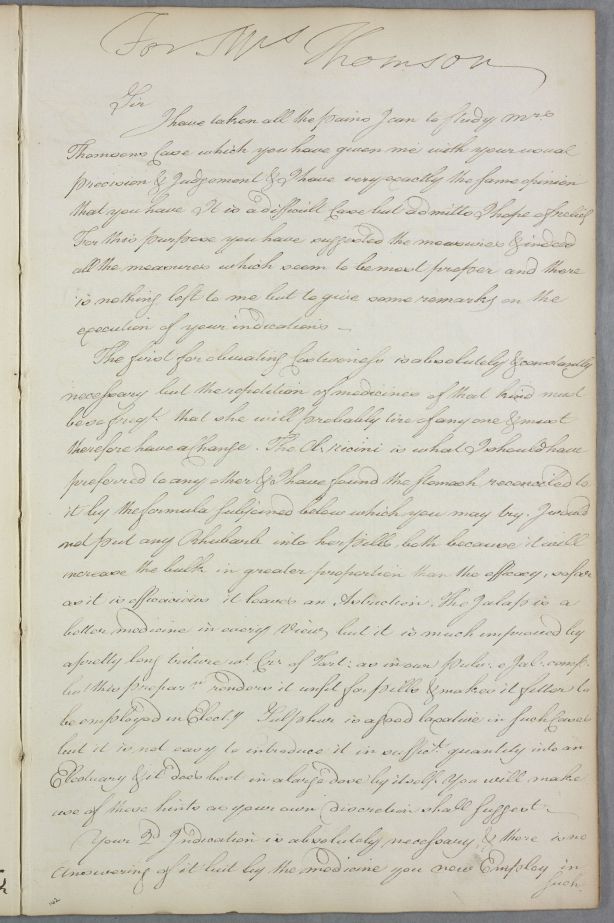 For Mrs Thomson
Sir
I have taken all the pains I can to study Mrs
Thomsons Case which you have given me with your usual
precision & Judgement & I have very exactly the same opinion
that you have It is a difficult Case but admitts I hope of relief
For this purpose you have suggested the measures & indeed
all the measures which seem to be most proper and there
is nothing left to me but to give some remarks on the
execution of your indications —
The first for obviating Costiveness is absolutely & constantly
necessary but the repetition of medicines of that kind must
be so freqt. that she will probably tire of any one & must
therefore have a Change. The Ol. ricini is what I should have
preferred to any other & I have found the stomach reconciled to
it by the formula subjoined below which you may try. I would
not put any Rhubarb into her pills, both because it will
increase the bulk in greater proportion than the efficacy,
as it is efficacious it leaves an Astriction. The Jalap is a
better medicine in every View, but it is much improved by
a pretty long triture wt. Crr. of Tart: as in our pulv: e Jal: comp.
but this preparn. renders it unfit for pills & makes it fitter to
be employed in Electy. Sulphur is a good laxative in such Cases
but it is not easy to introduce it in suffict. quantity into an
Electuary & it does best in a large dose by itself. You will make
use of these hints as your own Discretion shall suggest —
Your 2d Indication is absolutely necessary, & there is no
answering of it but by the medicine you now Employ in
such